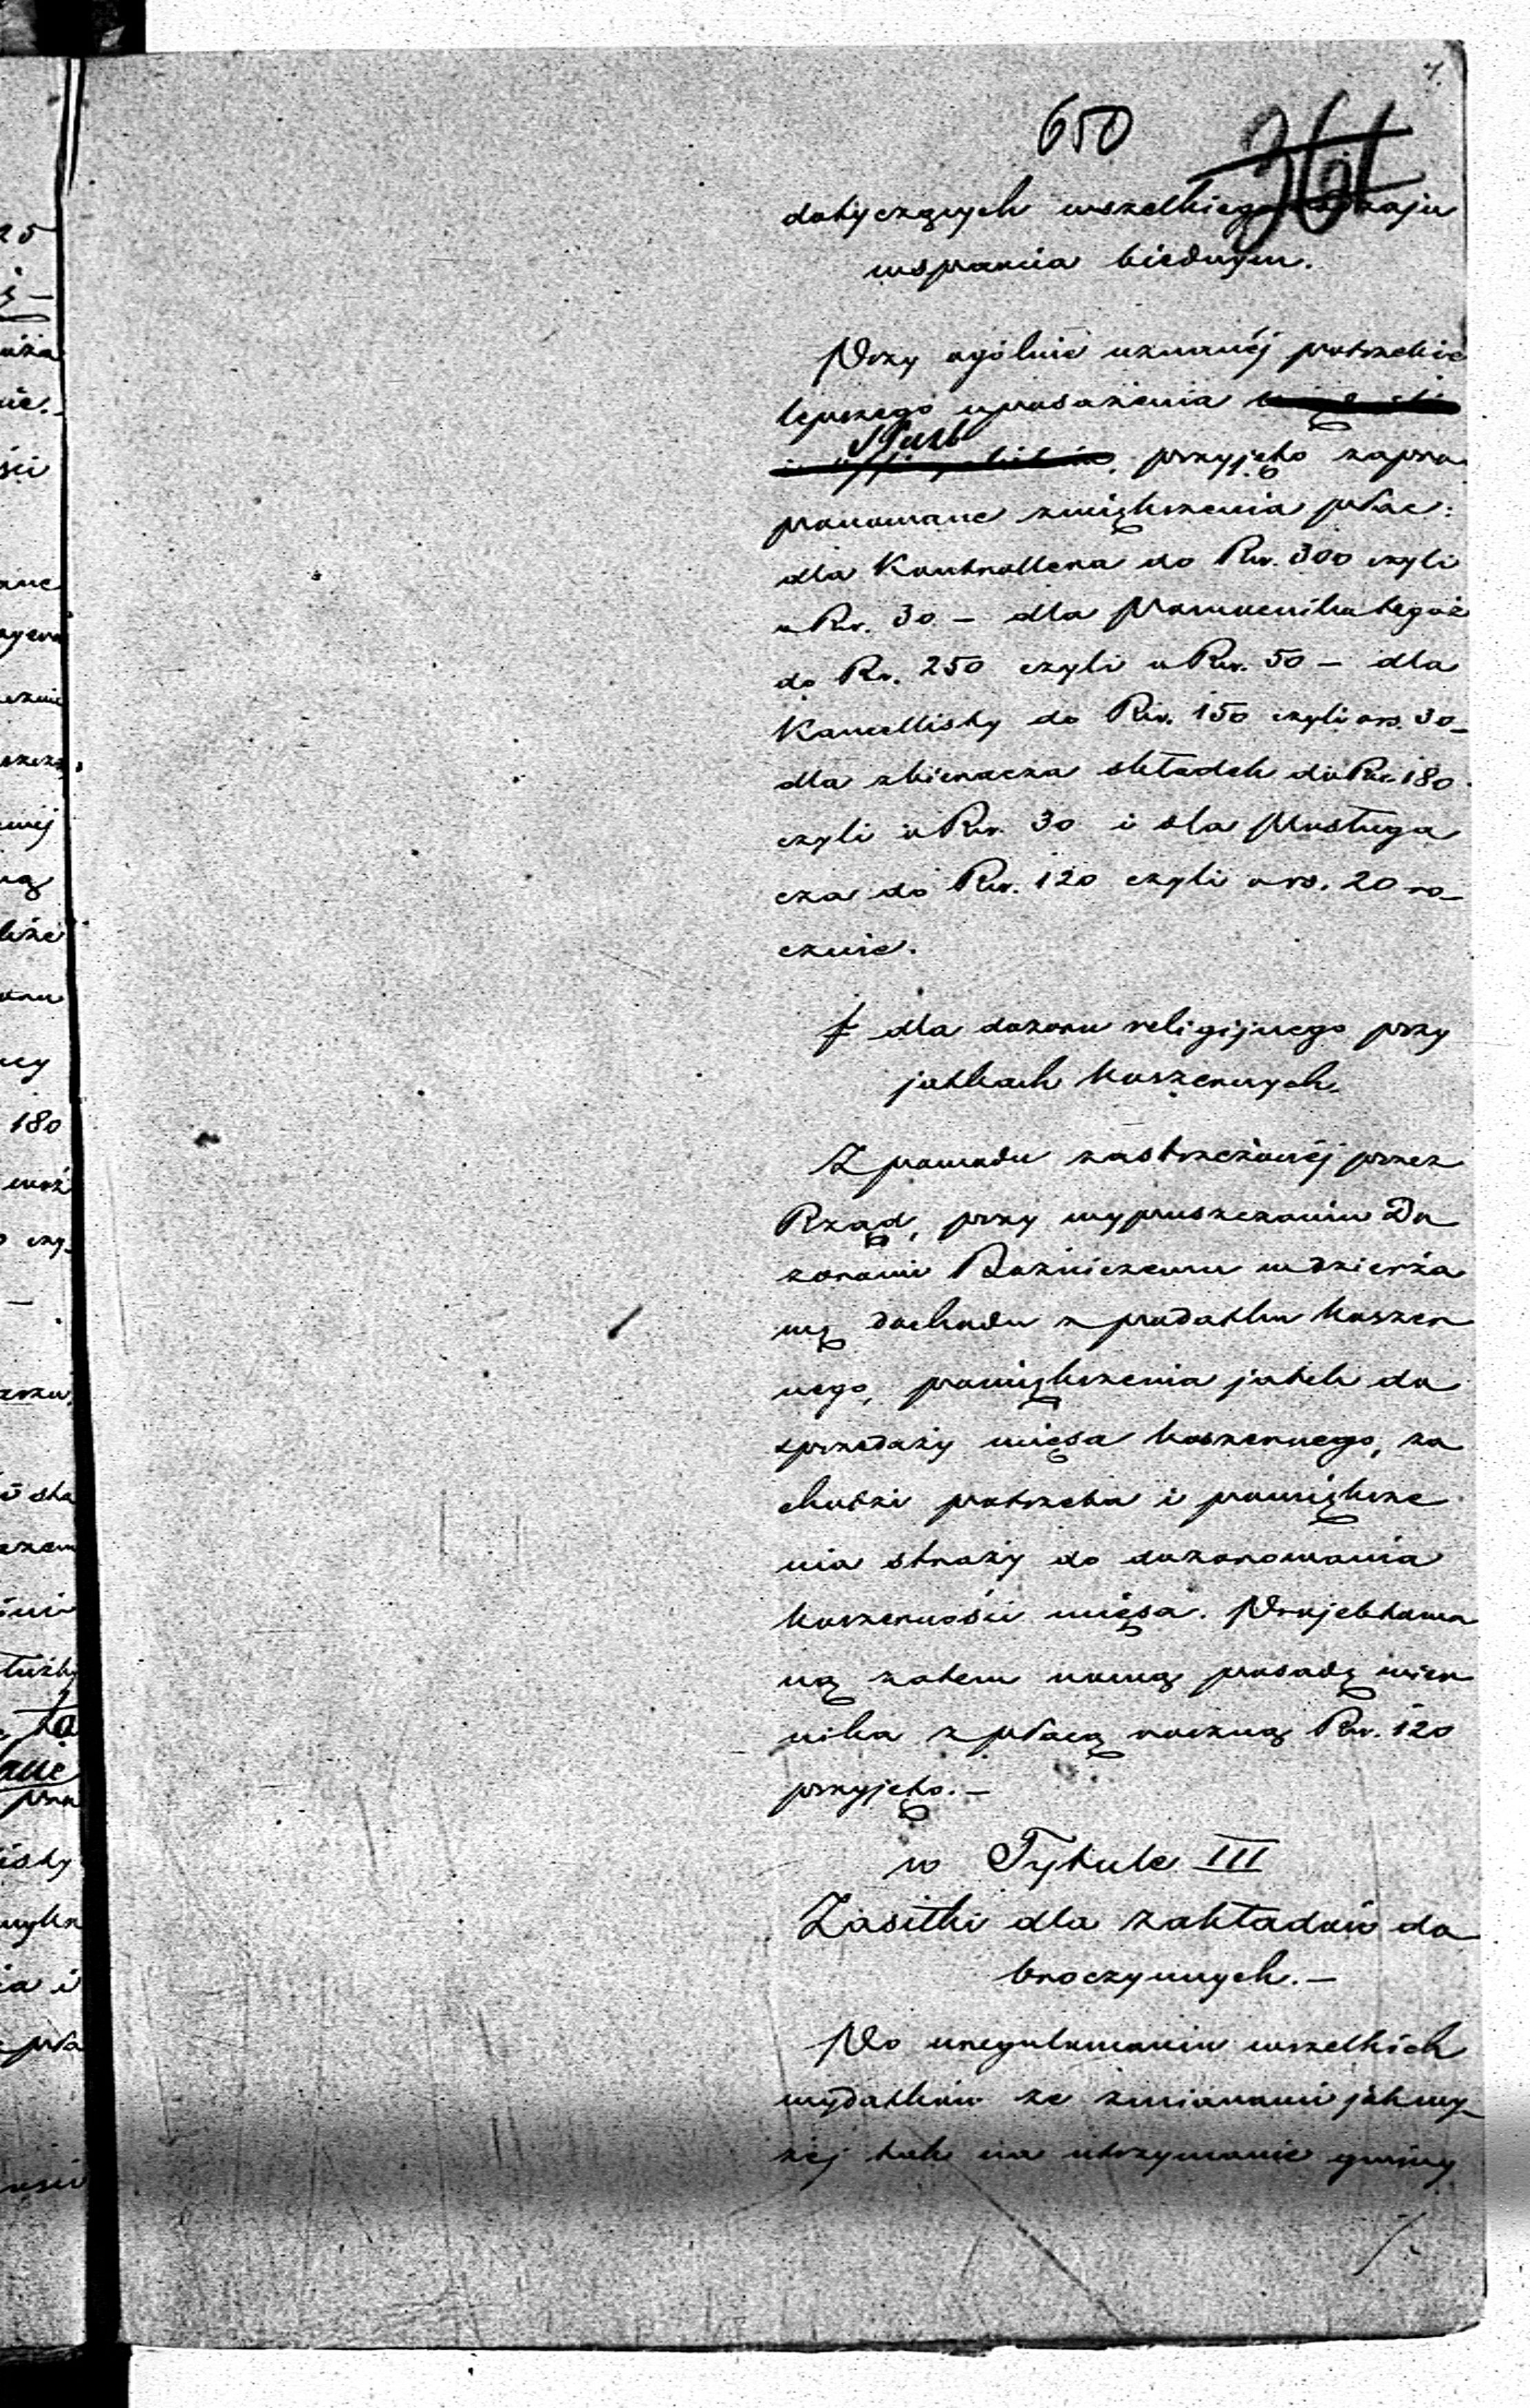 7.
650
dotyczących wszelkiego rodzaju
wsparcia biednym.
Przy ogólnie uznanéj potrzebie
lepszego uposażenia
Służb
przyjęto zapro
ponowane zwiększenia płac:
dla Kontrollera do Rsr. 300 czyli
o Rsr. 30 – dla Pomocnika tegoż
do Rs. 250 czyli o Rsr. 50 – dla
Kancellisty do Rsr. 150 czyli o rs. 30 –
dla zbieracza składek do Rsr. 180
czyli o Rsr. 30 i dla Posługa
cza do Rsr. 120 czyli o rs. 20 ro–
cznie.
f dla dozoru religijnego przy
jatkach koszernych.
Z powodu zastrzeżonéj przez
Rząd, przy wypuszczaniu Do
zorowi Bóżniczemu w dzierża
wę dochodu z podatku koszer
nego, powiększenia jatek do
sprzedaży mięsa koszernego, za
chodzi potrzeba i powiększe
nia straży do dozorowania
koszerności mięsa. Projektowa
ną zatem nową posadę wier
nika z płacą roczną Rsr. 120
przyjęto. –
w Tytule III
Zasiłki dla zakładów do
broczynnych. –
Po uregulowaniu wszelkich
wydatków ze zmianami jak wy–
żej tak na utrzymanie gminy